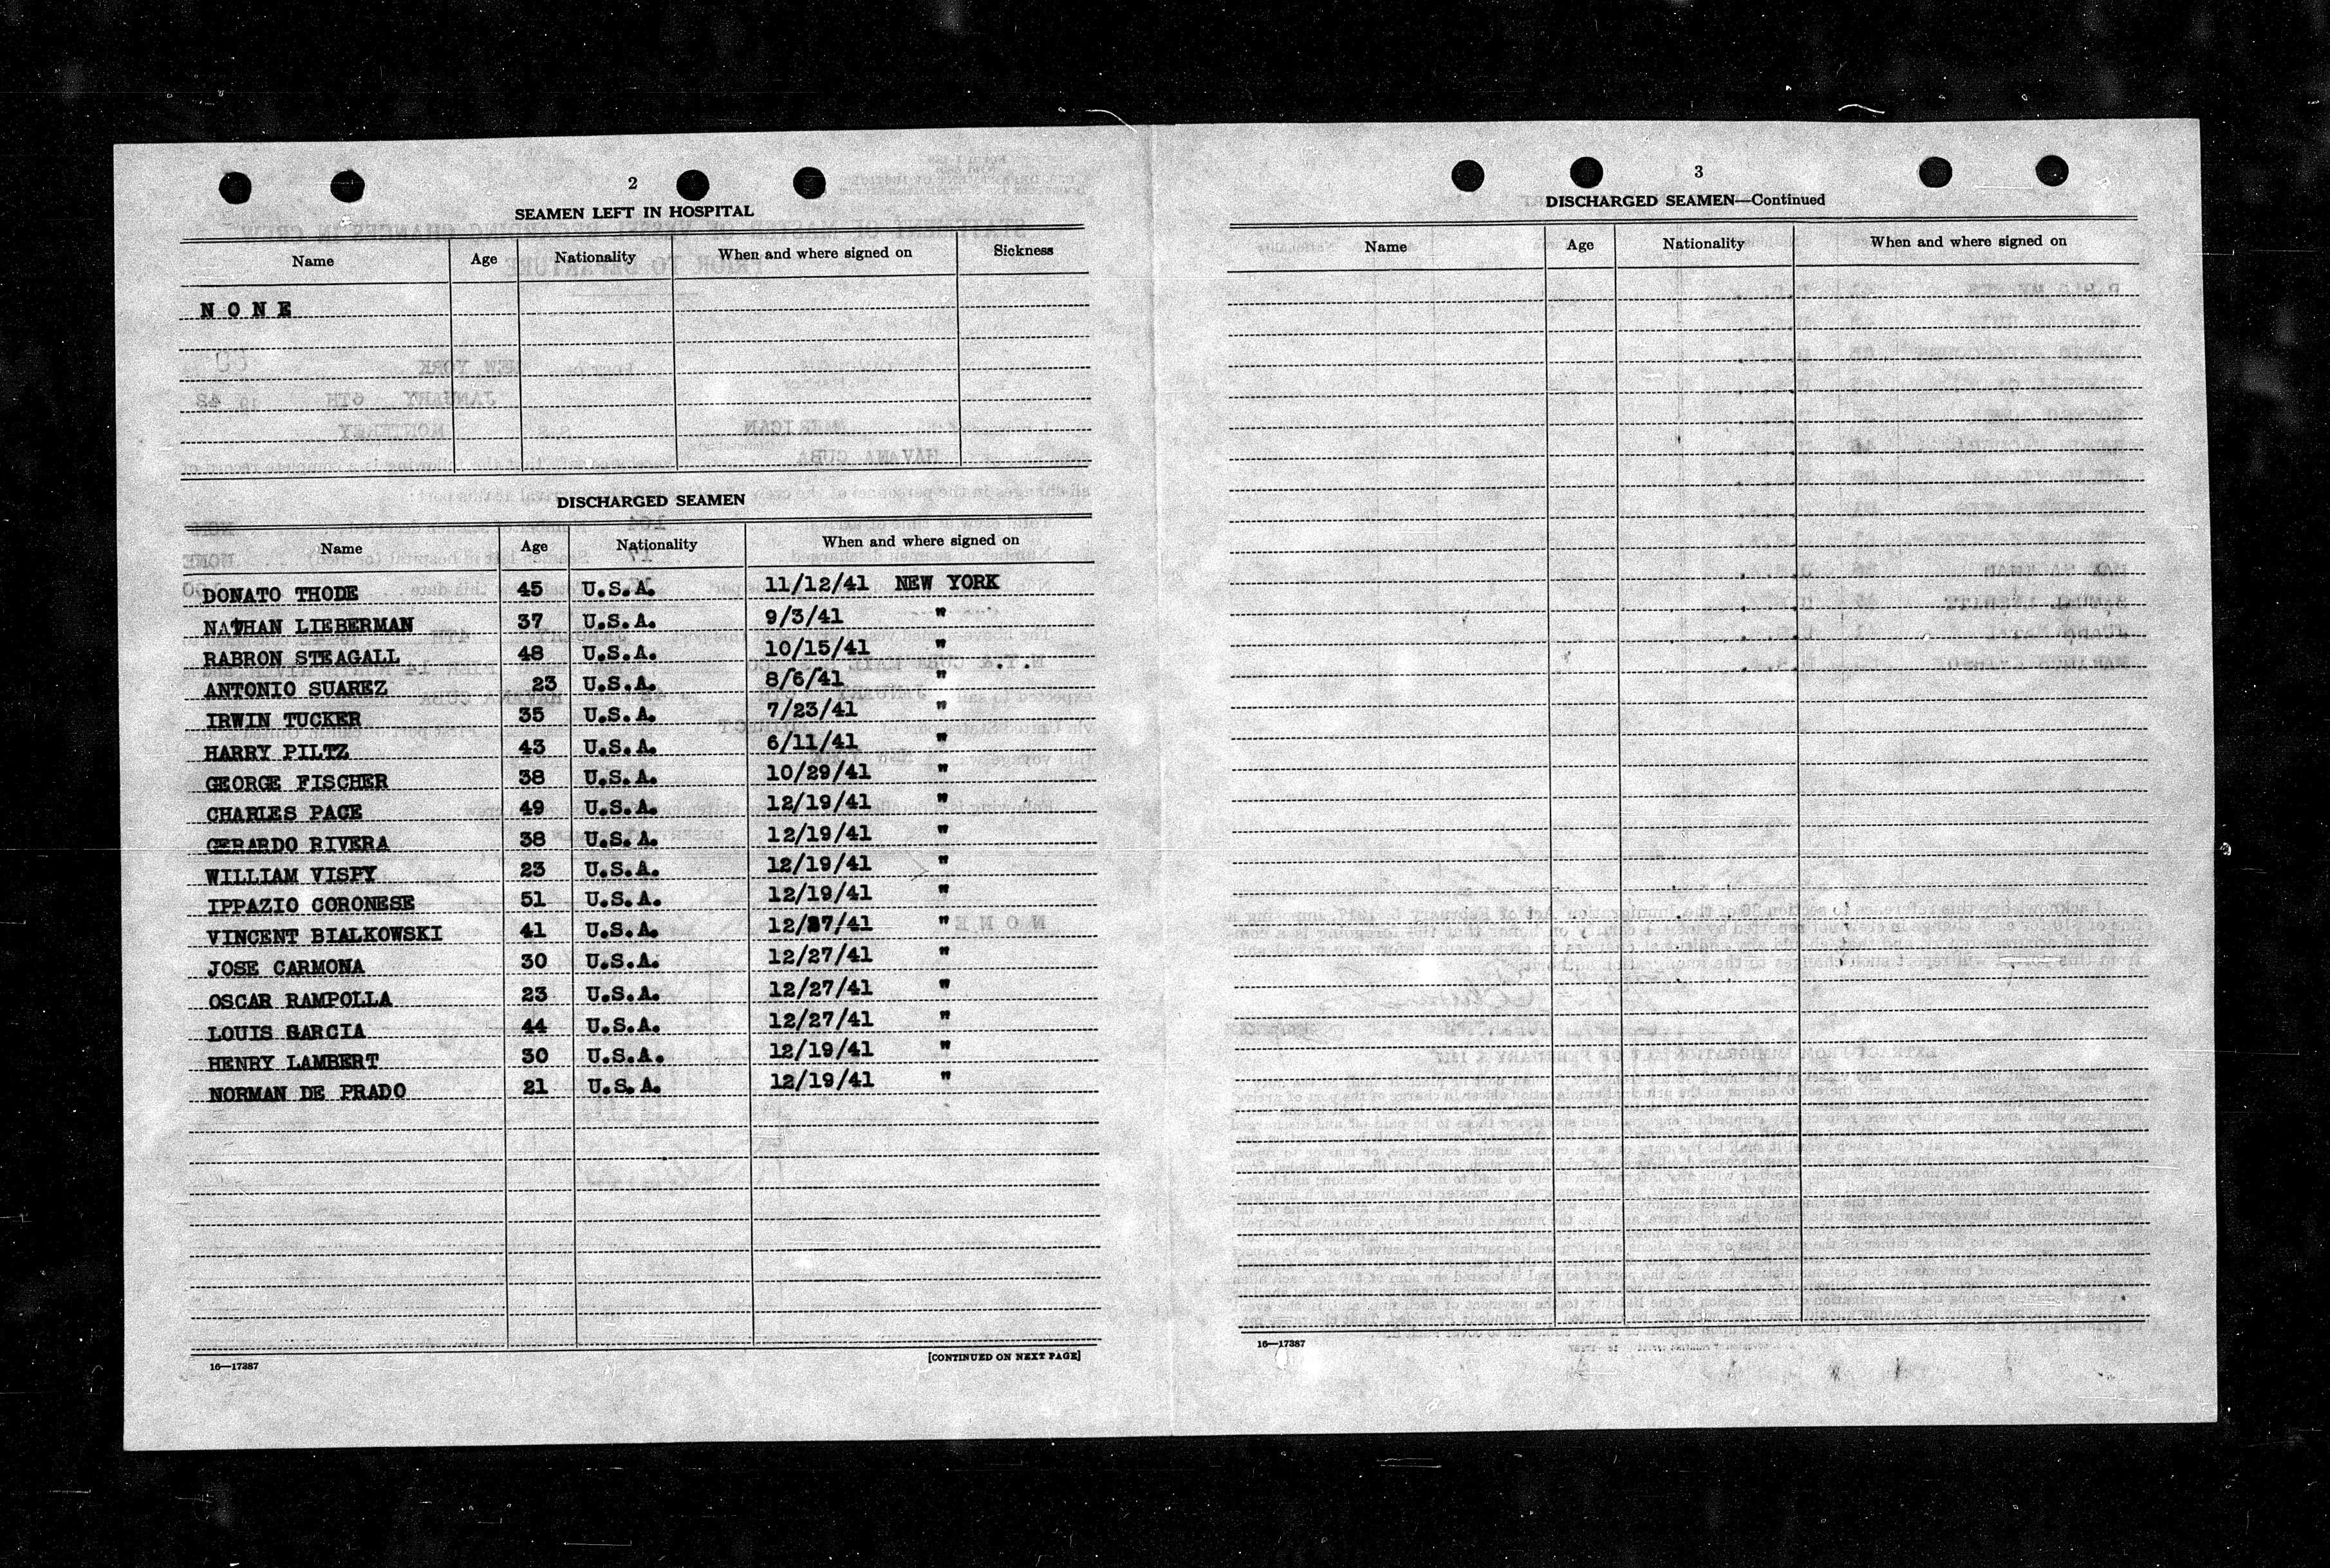 2
SEAMEN LEFT IN HOSPITAL
Name Age Nationality When and where signed on Sickness
N O N E
DISCHARGED SEAMEN
Name Age Nationality When and where signed on
DONATO THODE 45 U.S.A. 11/12/41 NEW YORK
NATHAN LIEBERMAN 37 U.S.A. 9/3/41 "
RABRON STEAGALL 48 U.S.A. 10/15/41 "
ANTONIO SUAREZ 23 U.S.A. 8/6/41 "
IRWIN TUCKER 35 U.S.A. 7/23/41 "
HARRY PILTZ 43 U.S.A. 6/11/41 "
GEORGE FISCHER 38 U.S.A. 10/29/41 "
CHARLES PACE 49 U.S.A. 12/19/41 "
GERARDO RIVERA 38 U.S.A. 12/19/41 "
WILLIAM VISPY 23 U.S.A. 12/19/41 "
IPPAZIO CORONESE 51 U.S.A. 12/19/41 "
VINCENT BIALKOWSKI 41 U.S.A. 12/27/41 "
JOSE CARMONA 30 U.S.A. 12/27/41 "
OSCAR RAMPOLLA 23 U.S.A. 12/27/41 "
LOUIS GARCIA 44 U.S.A. 12/27/41 "
HENRY LAMBERT 30 U.S.A. 12/19/41 "
NORMAN DE PRADO 21 U.S.A. 12/19/41 "
16—17387 [CONTINUED ON NEXT PAGE]
3
DISCHARGED SEAMEN—Continued
Name Age Nationality When and where signed on
16—17387